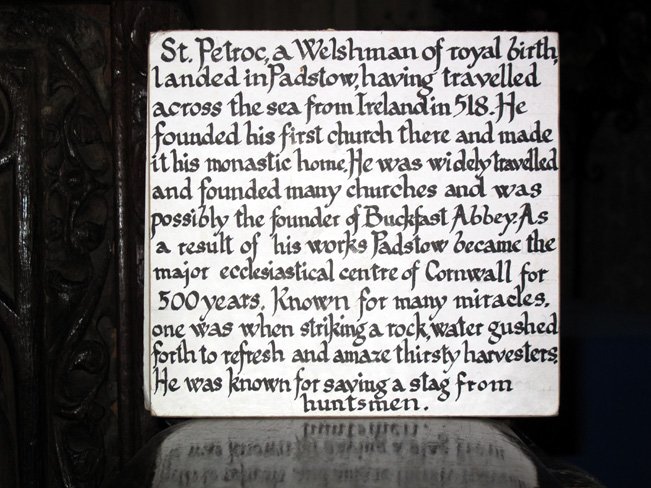 St. Petroc, a Welshman of royal birth,
landed in Padstow, having travelled
across the sea from Ireland in 518. He
founded his first church there and made
it his monastic home. He was widely travelled
and founded many churches and was
possibly the founder of Buckfast Abbey. As
a result of his works Padstow became the
major ecclesiastical centre of Cornwall for
500 years. Known for many miracles,
one was when striking a rock, water gushed
forth to refresh and amaze thirsty harvesters.
He was known for saving a stag from
huntsmen.